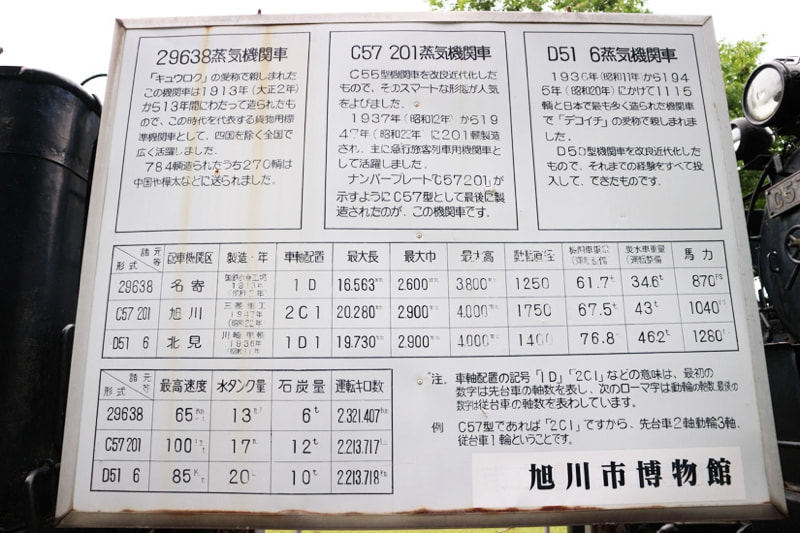 29638蒸気機関車
「キュウロク」の愛称で親しまれた
この機関車は1913年(大正2年)
から13年間にわたって造られたも
ので、この時代を代表する貨物用標
準機関車として、四国を除く全国で
広く活躍しました。
784輌造られたうち270輌は
中国や樺太などに送られました。
C57 201蒸気機関車
C55型機関車を改良近代化した
もので、そのスマートな形態が人気
をよびました。
1937年(昭和12年)から19
47年(昭和22年)に201輌製造
され、主に急行旅客列車用機関車と
して活躍しました。
ナンバープレート「C57201」が
示すようにC57型として最後に製
造されたのが、この機関車です。
D51 6蒸気機関車
1936年(昭和11年)から194
5年(昭和20年)にかけて1115
輌と日本で最も多く造られた機関車
で「デコイチ」の愛称で親しまれま
した。
D50型機関車を改良近代化した
もので、それまでの経験をすべて投
入して、できたものです。
諸元等 形式 配車機関区 製造・年 車軸配置 最大長 最大巾 最大高 動輪直径 機関車重量(運転整備) 炭水車重量(運転整備) 馬力
29638 名寄 1D 16.563 2600 3.800 1250 61.7t 34.6t 870PS
C57 201 旭川 三菱重工 1947年 (昭和22年) 2C1 20.280 2900 4.000 1750 67.5t 43t 1040
D51 6 北見 川崎車輌 1936年 (昭和11年) 1D1 19.730 2900 4.000 1400 76.8 46.2t 1280
諸元等 形式 最高速度 水タンク量 石炭量 運転キロ数
29638 65 13 6t 2.321.407
C57 201 100 17 12t 2.213.717
D51 6 85 20 10t 2.213.718
注. 車軸配置の記号「1D」「2C1」などの意味は、最初の
数字は先台車の軸数を表し、次のローマ字は動輪の軸数、最後の
数字は従台車の軸数を表わしています。
例 C57型であれば「2C1」ですから、先台車2軸動輪3軸、
従台車1輪ということです。
旭川市博物館